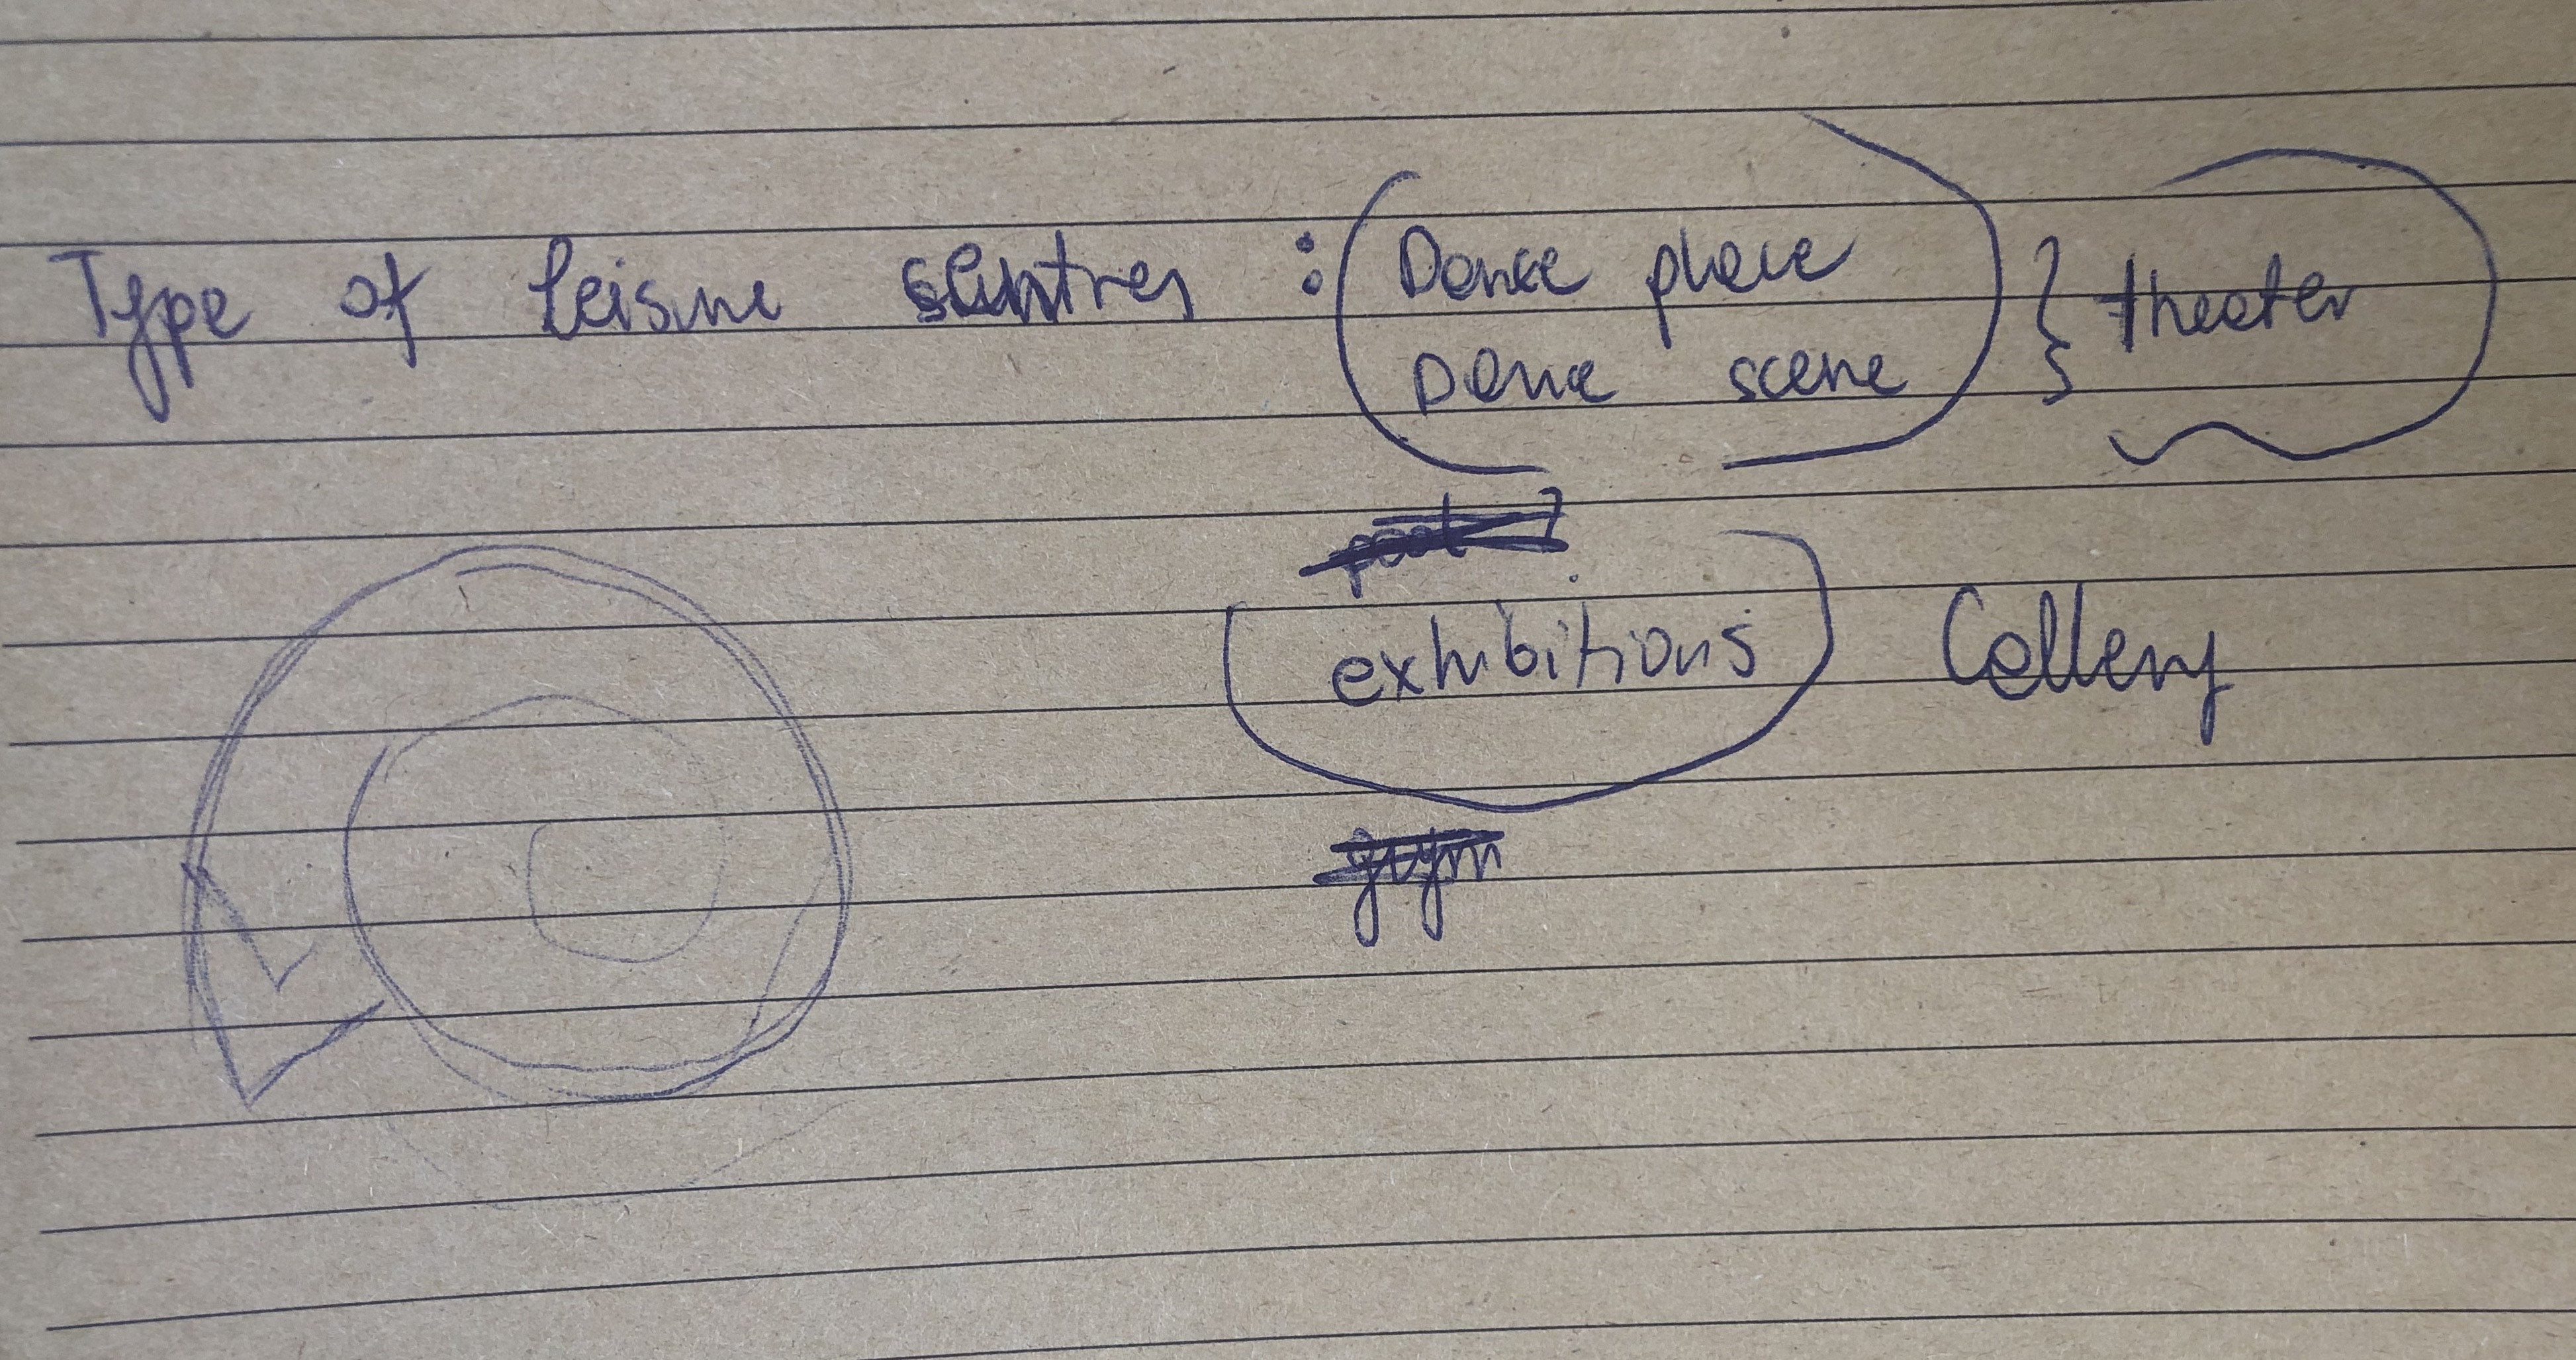 Type of leisure centres : Dance place } theater
Dance scene
pool ?
exhibitions Gallery
gym